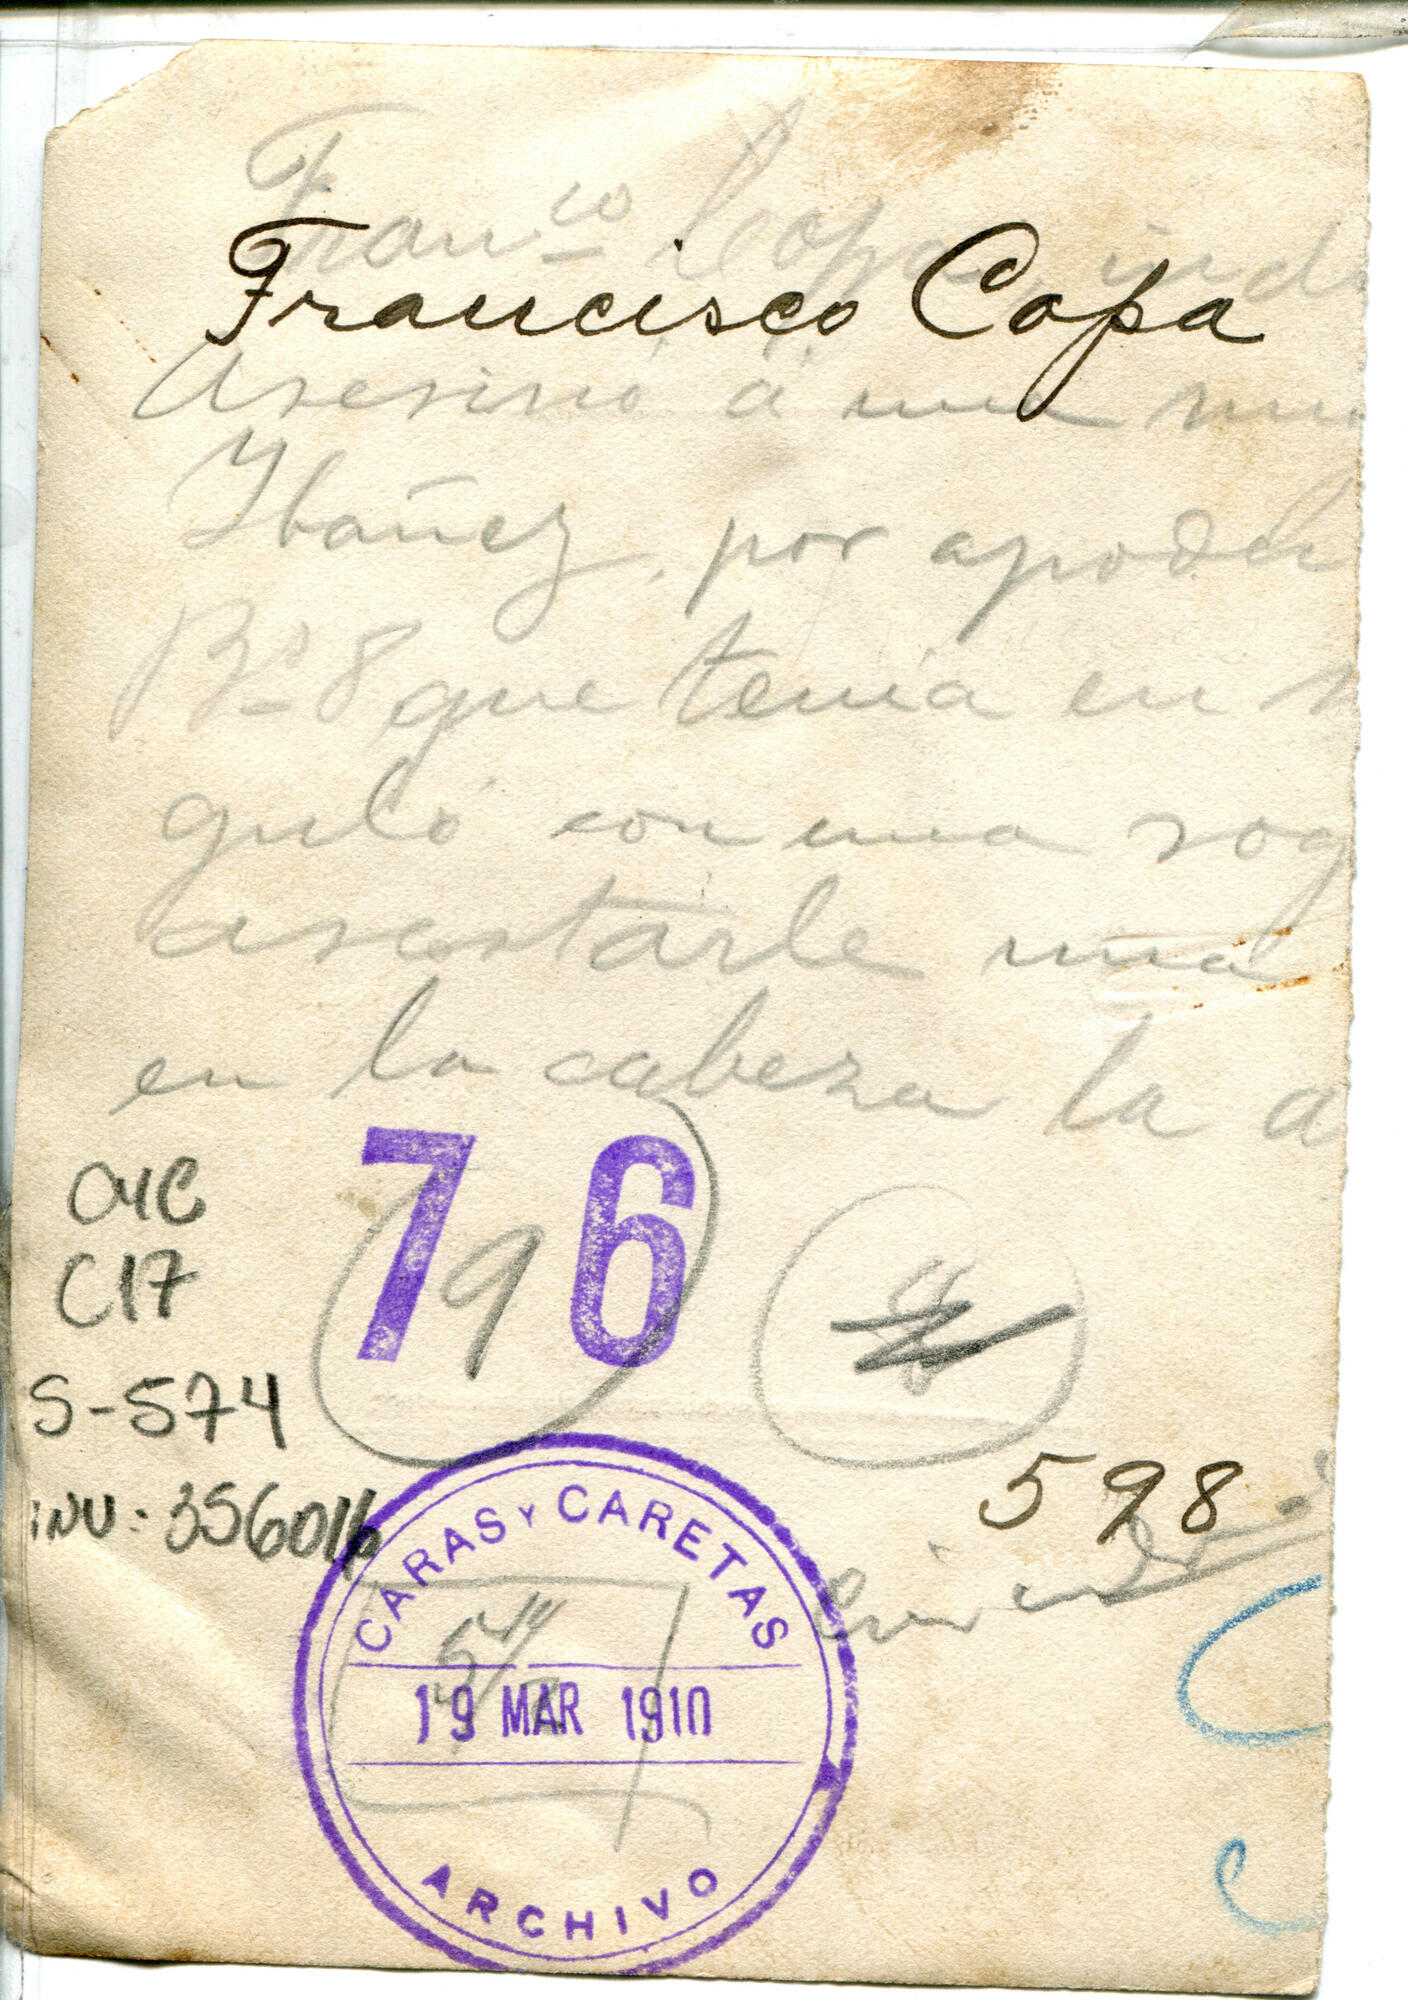 Franco Copa, ind
Francisco Copa
Asesinó á una
Ibáñez, por apoder
Bs 8 que tenía en
guló con una sog
asestarle una
en la cabeza la a
76
9
C17
S-574
INV: 356016
598
CARAS Y CARETAS
5
19 MAR 1910
ARCHIVO